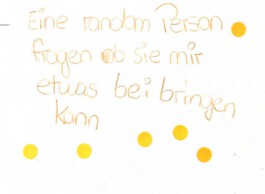 Eine random Person
fragen ob sie mir
etwas bei bringen
kann